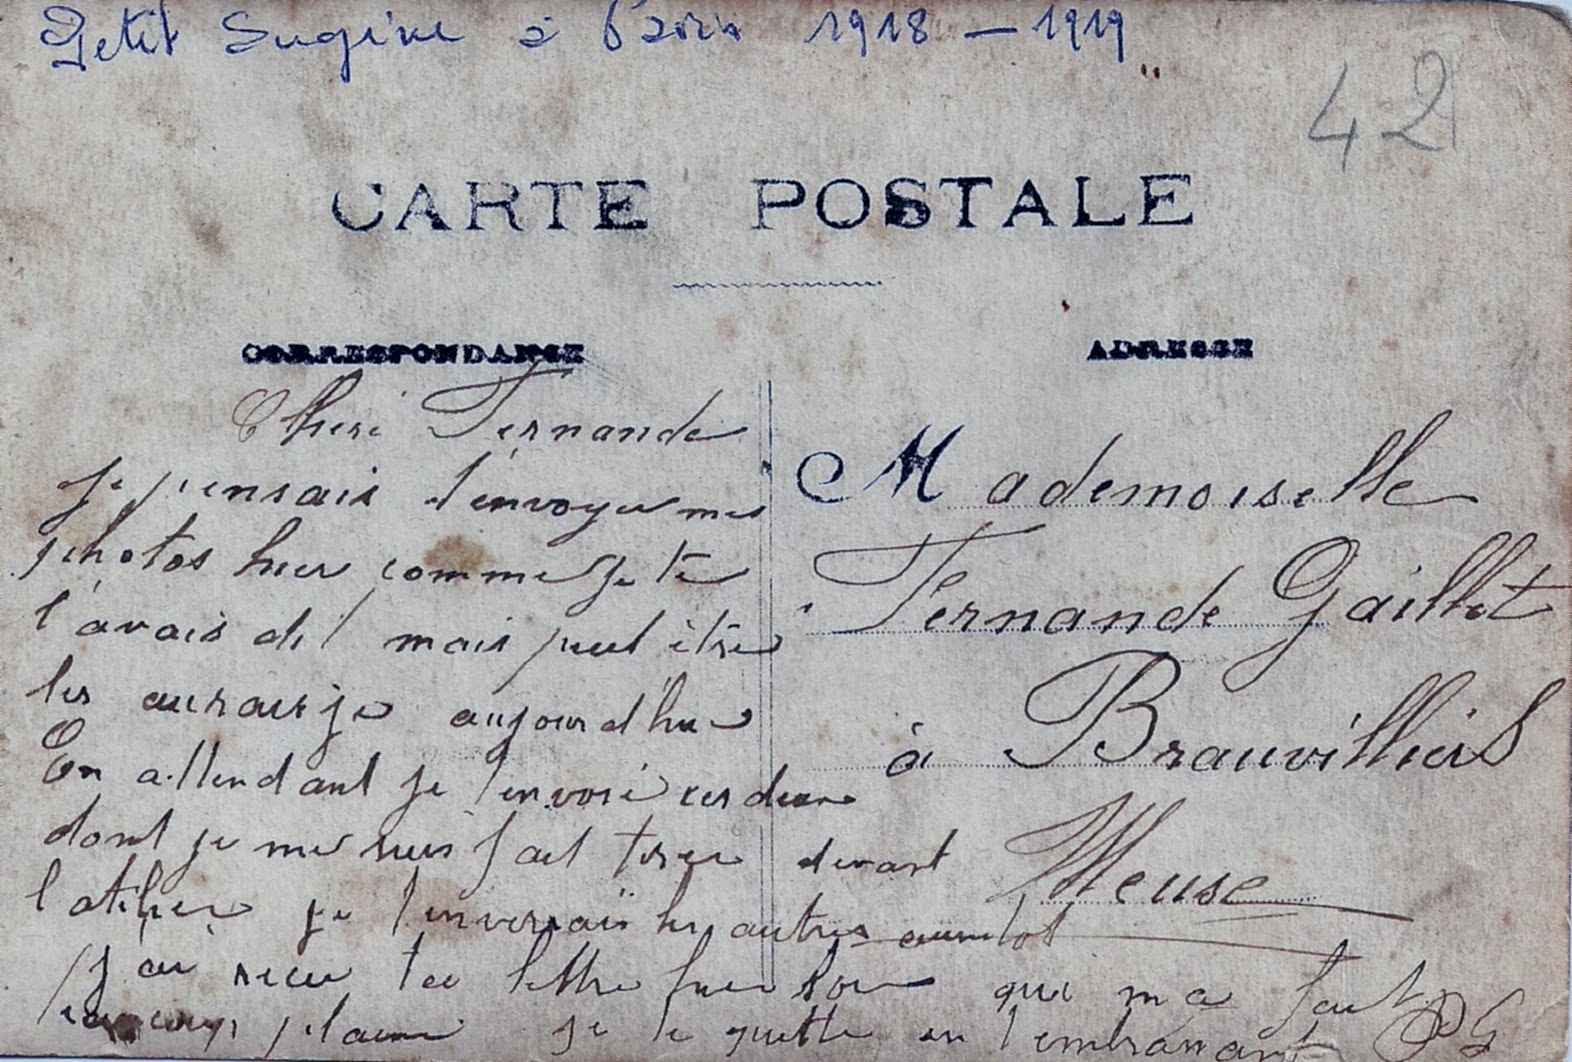 Petit Eugène à Paris 1918 - 1919
42
CARTE POSTALE
CORRESPONDANCE
ADRESSE
Cheri Fernande
je pensais t'envoyer mes
photos hier comme je te
l'avais dit mais peut être
les aurais je aujourdhui
En attendant je t'envoie ces deux
dont je me suis fait tirer devant
l'atelier je t'enverrai les autres aussitot
J'ai recu ta lettre hier soir qui m'a fait
plaisir je te quitte en t'embrassant
Mademoiselle
Fernande Gaillet
à Brauvilliers
Meuse